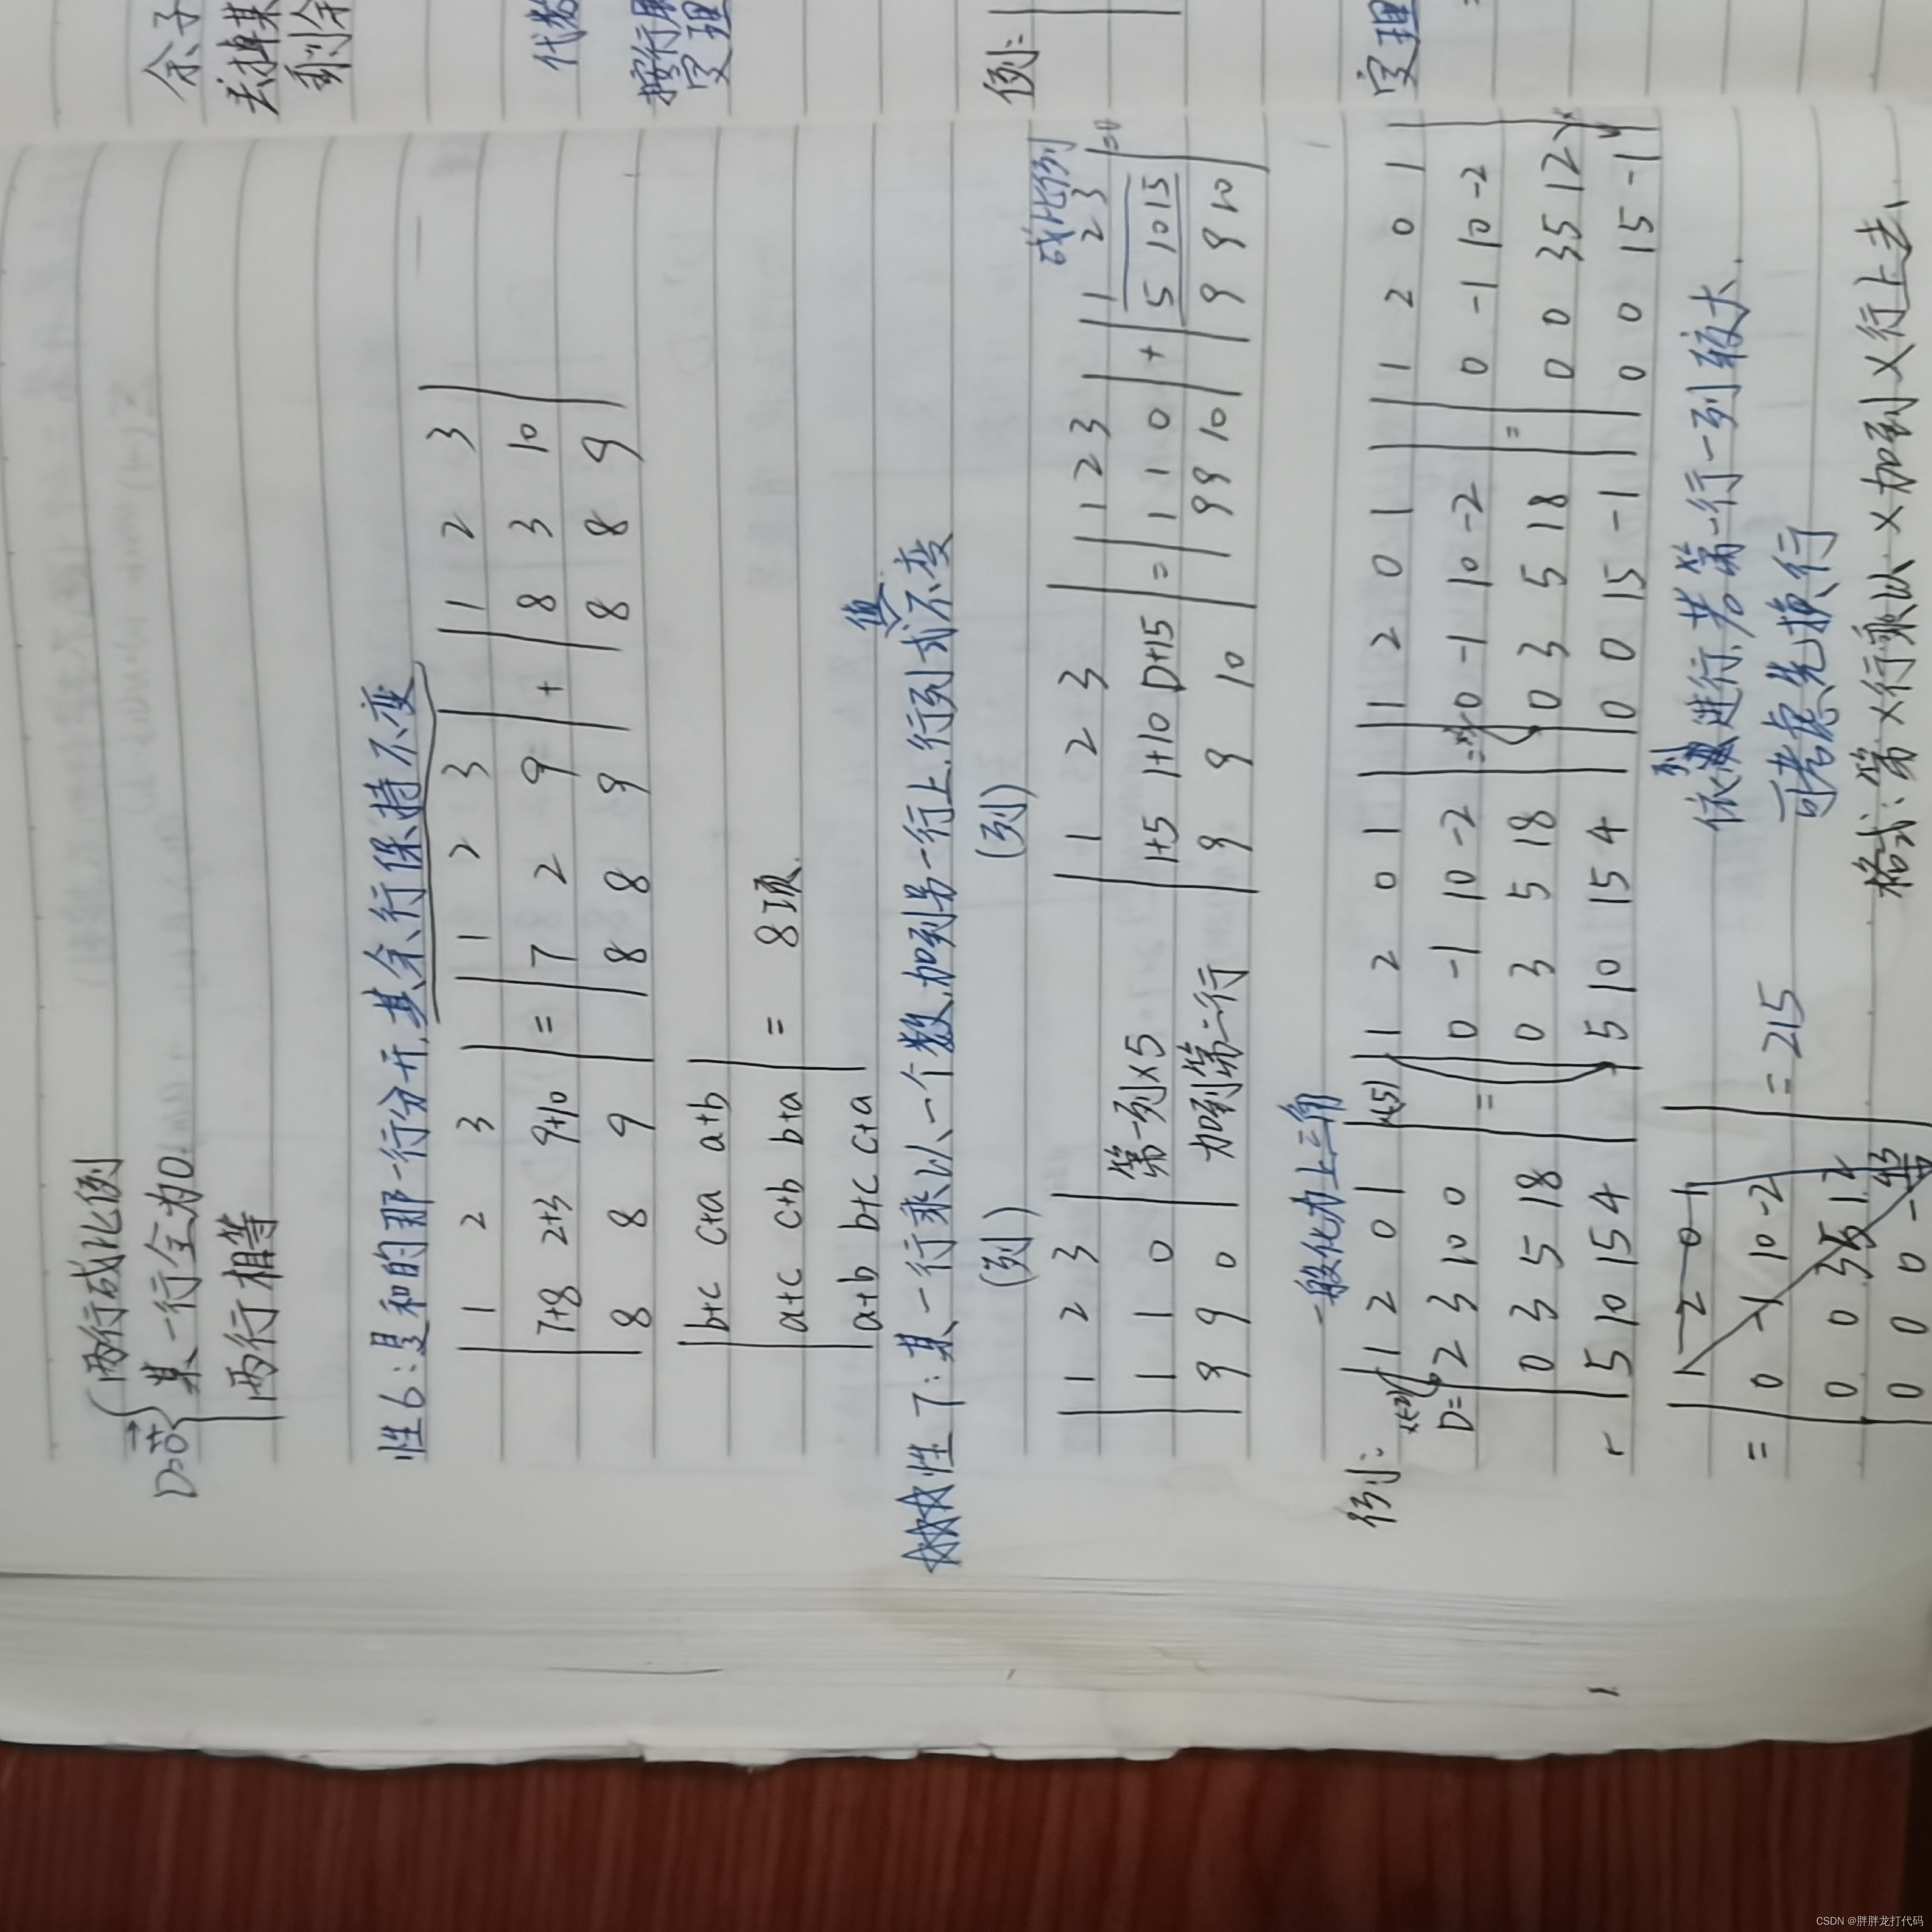 两行成比例
D=0 某一行全为0.
两行相等
性6:是和的那一行分开,其余行保持不变
1 2 3 1 2 3 1 2 3
7+8 2+3 9+10 = 7 2 9 + 8 3 10
8 8 9 8 8 9 8 8 9
b+c c+a a+b
a+c c+b b+a = 8项.
a+b b+c c+a
值
性7:某一行乘以一个数,加到另一行上,行列式不变
(列) (列)
成比例
1 2 3 1 2 3 1 2 3 1 2 3 =0
1 1 0 第一列×5 1+5 1+10 D+15 = 1 1 0 + 5 10 15
9 9 0 加到第二行 9 9 10 9 9 10 9 9 10
一般化为上三角
例:
1 2 0 1 1 2 0 1 1 2 0 1 1 2 0 1
D= 2 3 10 0 = 0 -1 10 -2 = 0 -1 10 -2 = 0 -1 10 -2
0 3 5 18 0 3 5 18 0 3 5 18 0 0 35 12
5 10 15 4 5 10 15 4 0 0 15 -1 0 0 15 -1
1 2 0 1
= 0 -1 10 -2 = 215
0 0 35 12
0 0 0
依列进行,若第一行一列较大.
可考虑先换行
格式:第X行乘以X加到X行上去.
余子
去掉某
剩余
代数
按行展
定理
例:
定理
CSDN @胖胖龙打代码